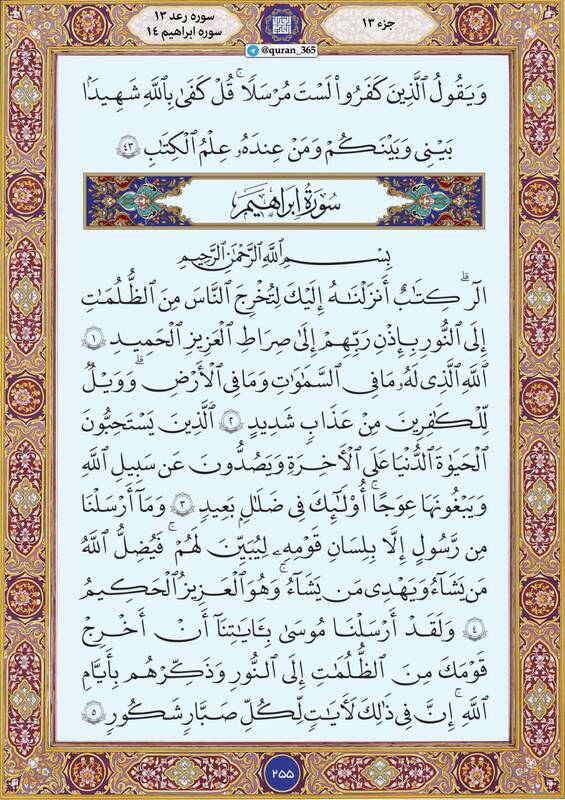 جزء ۱۳
سوره رعد ۱۳
سوره ابراهیم ۱۴
@quran_365
وَيَقُولُ ٱلَّذِينَ كَفَرُواْ لَسۡتَ مُرۡسَلٗاۚ قُلۡ كَفَىٰ بِٱللَّهِ شَهِيدَۢا
بَيۡنِي وَبَيۡنَكُمۡ وَمَنۡ عِندَهُۥ عِلۡمُ ٱلۡكِتَٰبِ ٤٣
سُورَةُ إِبۡرَاهِيمَ
بِسۡمِ ٱللَّهِ ٱلرَّحۡمَٰنِ ٱلرَّحِيمِ
الٓرۚ كِتَٰبٌ أَنزَلۡنَٰهُ إِلَيۡكَ لِتُخۡرِجَ ٱلنَّاسَ مِنَ ٱلظُّلُمَٰتِ
إِلَى ٱلنُّورِ بِإِذۡنِ رَبِّهِمۡ إِلَىٰ صِرَٰطِ ٱلۡعَزِيزِ ٱلۡحَمِيدِ ١
ٱللَّهِ ٱلَّذِي لَهُۥ مَا فِي ٱلسَّمَٰوَٰتِ وَمَا فِي ٱلۡأَرۡضِۗ وَوَيۡلٞ
لِّلۡكَٰفِرِينَ مِنۡ عَذَابٖ شَدِيدٍ ٢ ٱلَّذِينَ يَسۡتَحِبُّونَ
ٱلۡحَيَوٰةَ ٱلدُّنۡيَا عَلَى ٱلۡأٓخِرَةِ وَيَصُدُّونَ عَن سَبِيلِ ٱللَّهِ
وَيَبۡغُونَهَا عِوَجًاۚ أُوْلَٰٓئِكَ فِي ضَلَٰلِۭ بَعِيدٖ ٣ وَمَآ أَرۡسَلۡنَا
مِن رَّسُولٍ إِلَّا بِلِسَانِ قَوۡمِهِۦ لِيُبَيِّنَ لَهُمۡۖ فَيُضِلُّ ٱللَّهُ
مَن يَشَآءُ وَيَهۡدِي مَن يَشَآءُۚ وَهُوَ ٱلۡعَزِيزُ ٱلۡحَكِيمُ
٤ وَلَقَدۡ أَرۡسَلۡنَا مُوسَىٰ بِـَٔايَٰتِنَآ أَنۡ أَخۡرِجۡ
قَوۡمَكَ مِنَ ٱلظُّلُمَٰتِ إِلَى ٱلنُّورِ وَذَكِّرۡهُم بِأَيَّىٰمِ
ٱللَّهِۚ إِنَّ فِي ذَٰلِكَ لَأٓيَٰتٖ لِّكُلِّ صَبَّارٖ شَكُورٖ ٥
۲۵۵